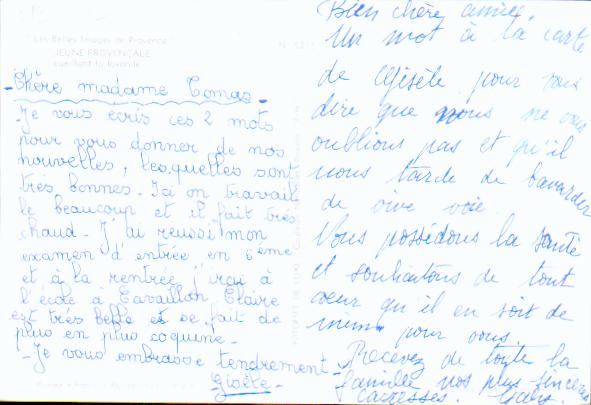 "Les Belles Images de Provence"
JEUNE PROVENÇALE
cueillant la lavande
- Chère madame Comas -
Je vous ecris ces 2 mots
pour vous donner de nos
nouvelles, lesquelles sont
très bonnes. Ici on travail
le beaucoup et il fait très
chaud - J'ai reussi mon
examen d'entrée en 6ème
et à la rentrée j'irai à
l'école à Cavaillon. Claire
est très belle et se fait de
plus en plus coquine.
- Je vous embrasse tendrement -
Gisèle -
Bien chère amie.
Un mot à la carte
de Gisèle pour vous
dire que nous ne vous
oublions pas et qu'il
nous tarde de bavarder
de vive voie.
Vous possédons la santé
et souhaitons de tout
cœur qu'il en soit de
même pour vous.
Recevez de toute la
famille nos plus sincères
caresses.